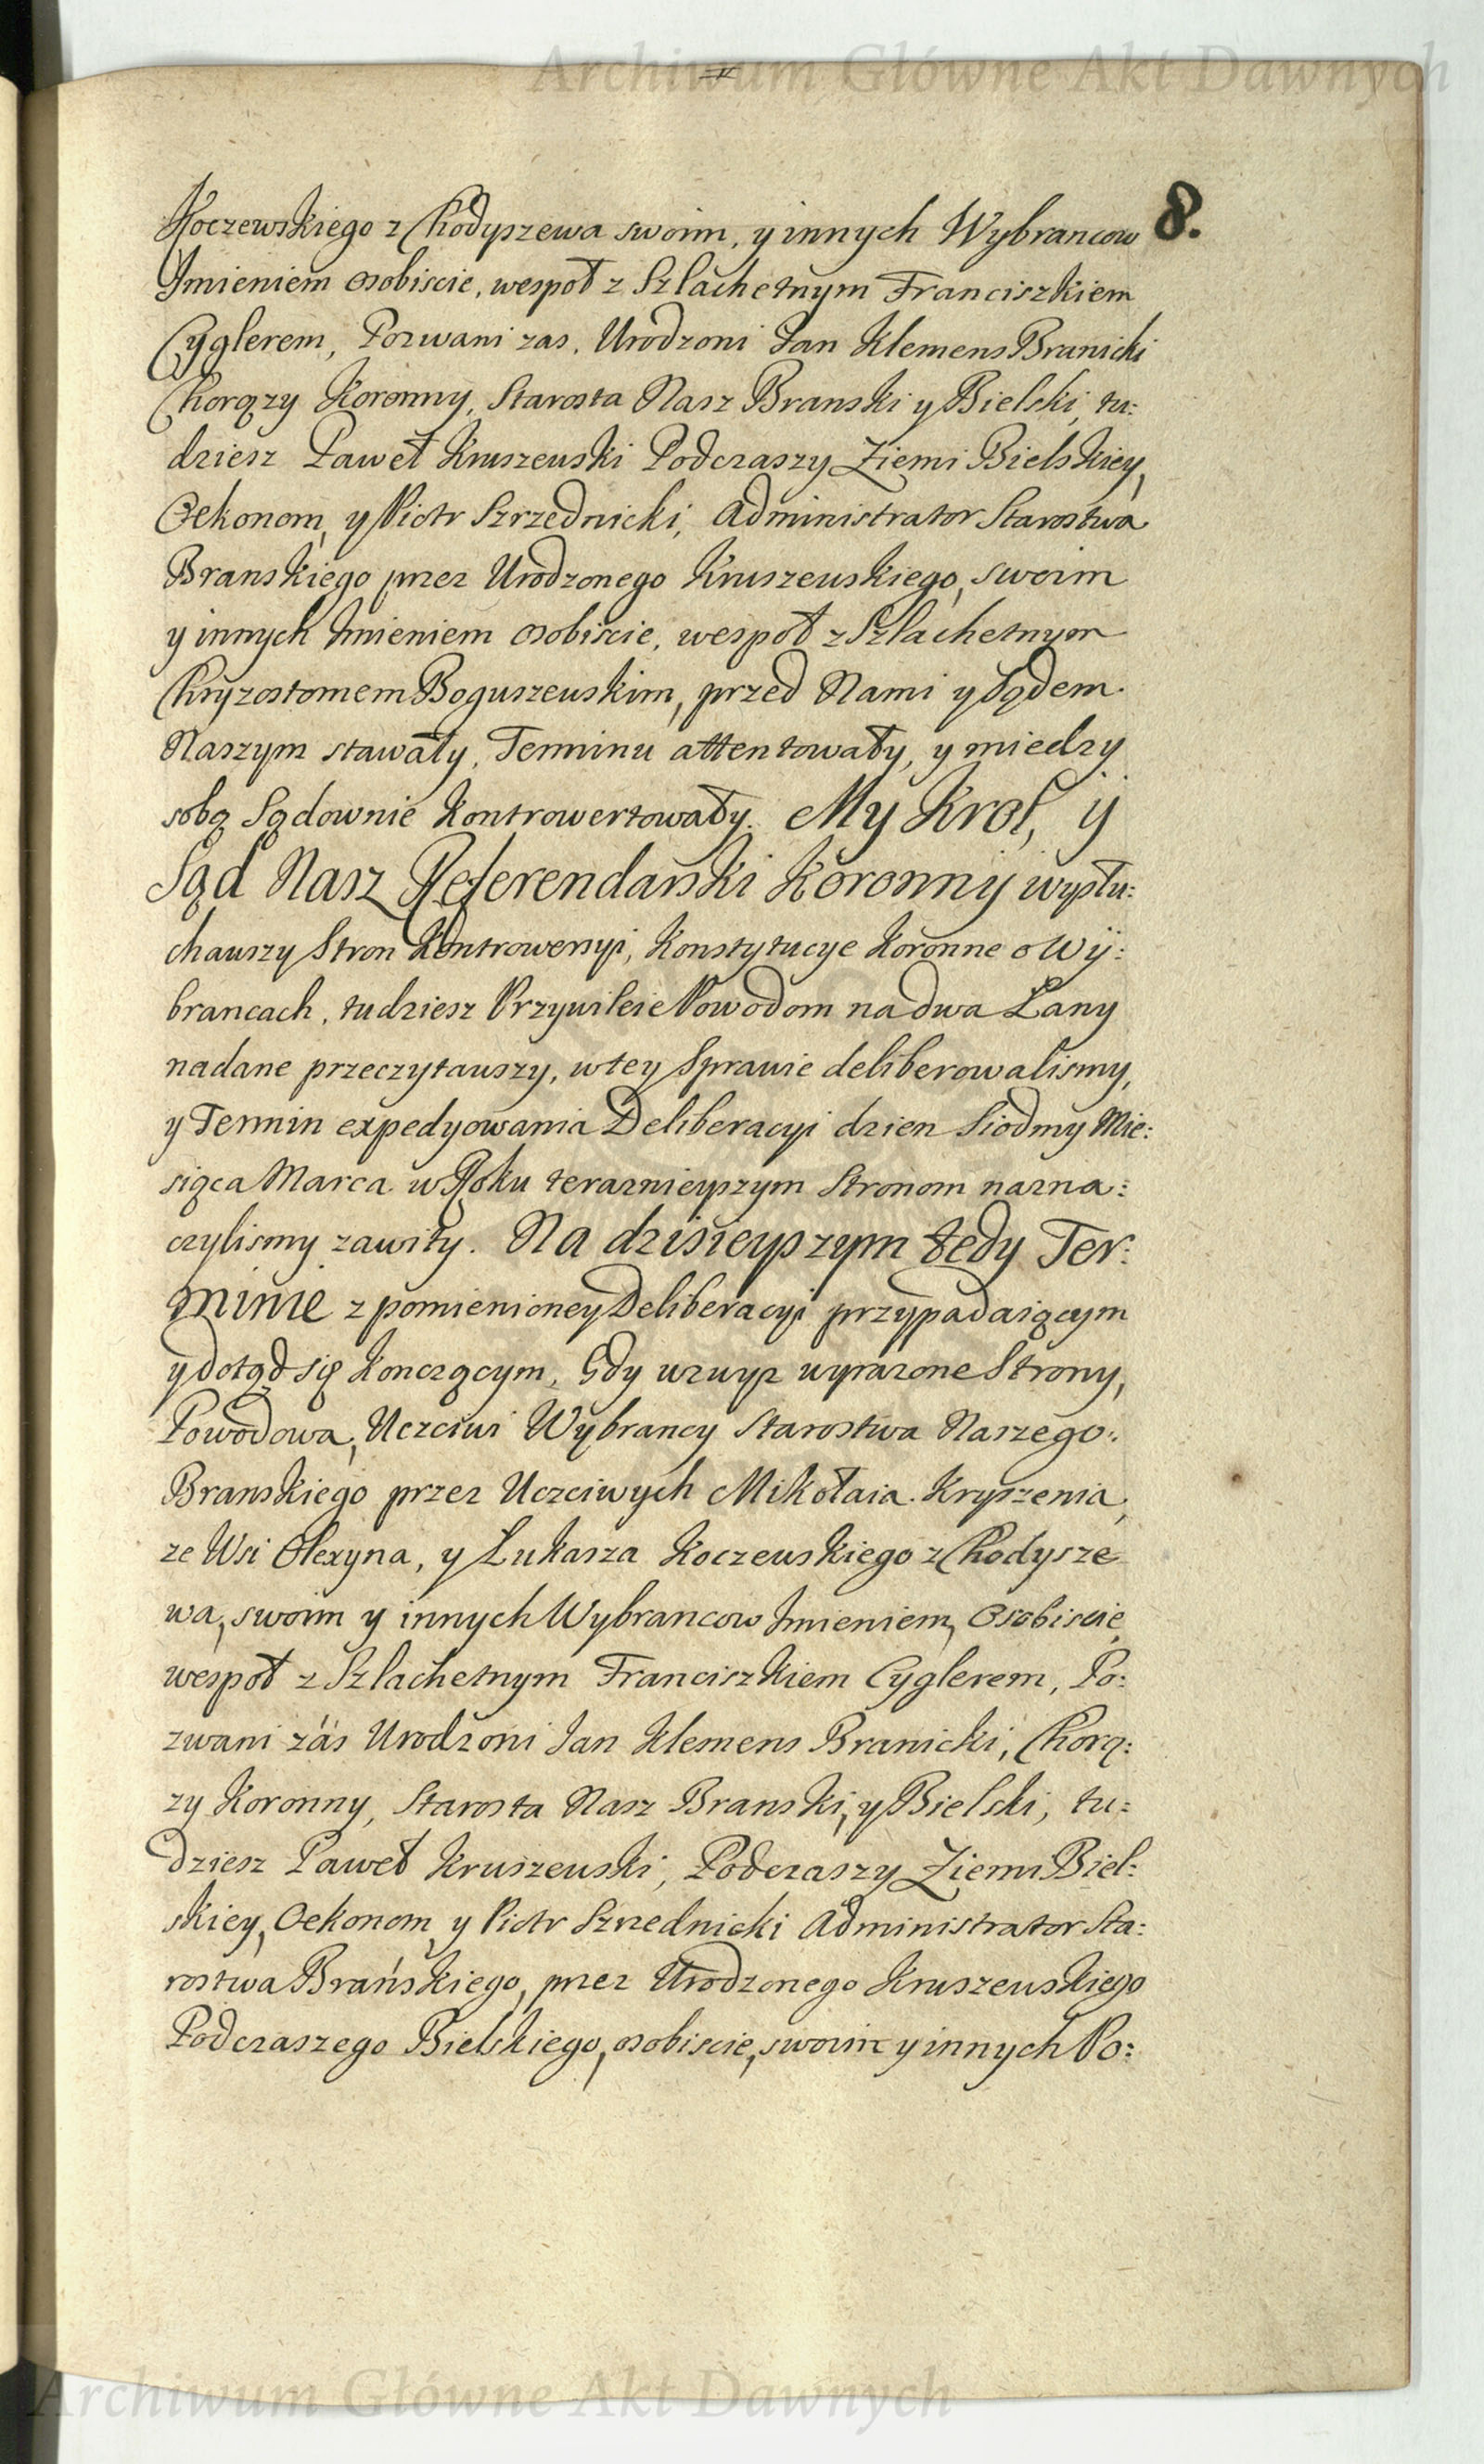 Archiwum Główne Akt Dawnych
8.
Koczewskiego z Chodyszewa swoim, y innych Wybrancow
Jmieniem osobiscie, wespoł z Szlachetnym Franciszkiem
Cyglerem, Pozwani zas, Urodzoni Jan Klemens Branicki
Chorązy Koronny, Starosta Nasz Branski y Bielski, tu:
dziesz Paweł Kruszewski Podczaszy Ziemi Bielskiey,
Oekonom, y Piotr Szrzednicki, Administrator Starostwa
Branskiego przez Urodzonego Kruszewskiego, swoim
y innych Jmieniem osobiscie, wespoł z Szlachetnym
Chryzostomem Boguszewskim, przed Nami y Sądem
Naszym stawały, Terminu attentowały, y miedzy
sobą Sądownie kontrowertowały. My Krol, y
Sąd Nasz Referendarski Koronny wysłu:
chawszy Stron Kontrowersyi, Konstytucye Koronne o Wy:
brancach, tudziesz Przywileie Powodom na dwa Łany
nadane przeczytawszy, w tey Sprawie deliberowalismy,
y Termin expedyowania Deliberacyi dzien Siodmy Mie:
siąca Marca w Roku terazniejszym Stronom nazna:
czylismy zawity. Na dzisieyszym tedy Ter:
minie z pomienioney Deliberacyi przypadaiącym
y dotąd się konczącym, Gdy wzwyz wyrazone Strony,
Powodowa, Uczciwi Wybrancy Starostwa Naszego:
Branskiego przez Uczciwych Mikołaia Kryszenia,
ze Wsi Olexyna, y Łukasza Koczewskiego z Chodysze
wa, swoim y innych Wybrancow Jmieniem, Osobiscie
wespoł z Szlachetnym Franciszkiem Cyglerem, Po:
zwani záś Urodzoni Jan Klemens Branicki, Chorą:
zy Koronny, Starosta Nasz Branski, y Bielski, tu:
dziesz Paweł Kruszewski, Podczaszy Ziemi Biel:
skiey, Oekonom, y Piotr Szrzednicki Administrator Sta:
rostwa Brańskiego, przez Urodzonego Kruszewskiego
Podczaszego Bielskiego, osobiscie, swoim y innych Po:
Archiwum Główne Akt Dawnych